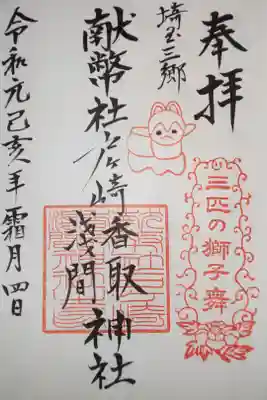 奉拝
三匹の獅子舞
埼玉三郷
献幣社彦崎香取神社
浅間
令和元己亥年霜月四日